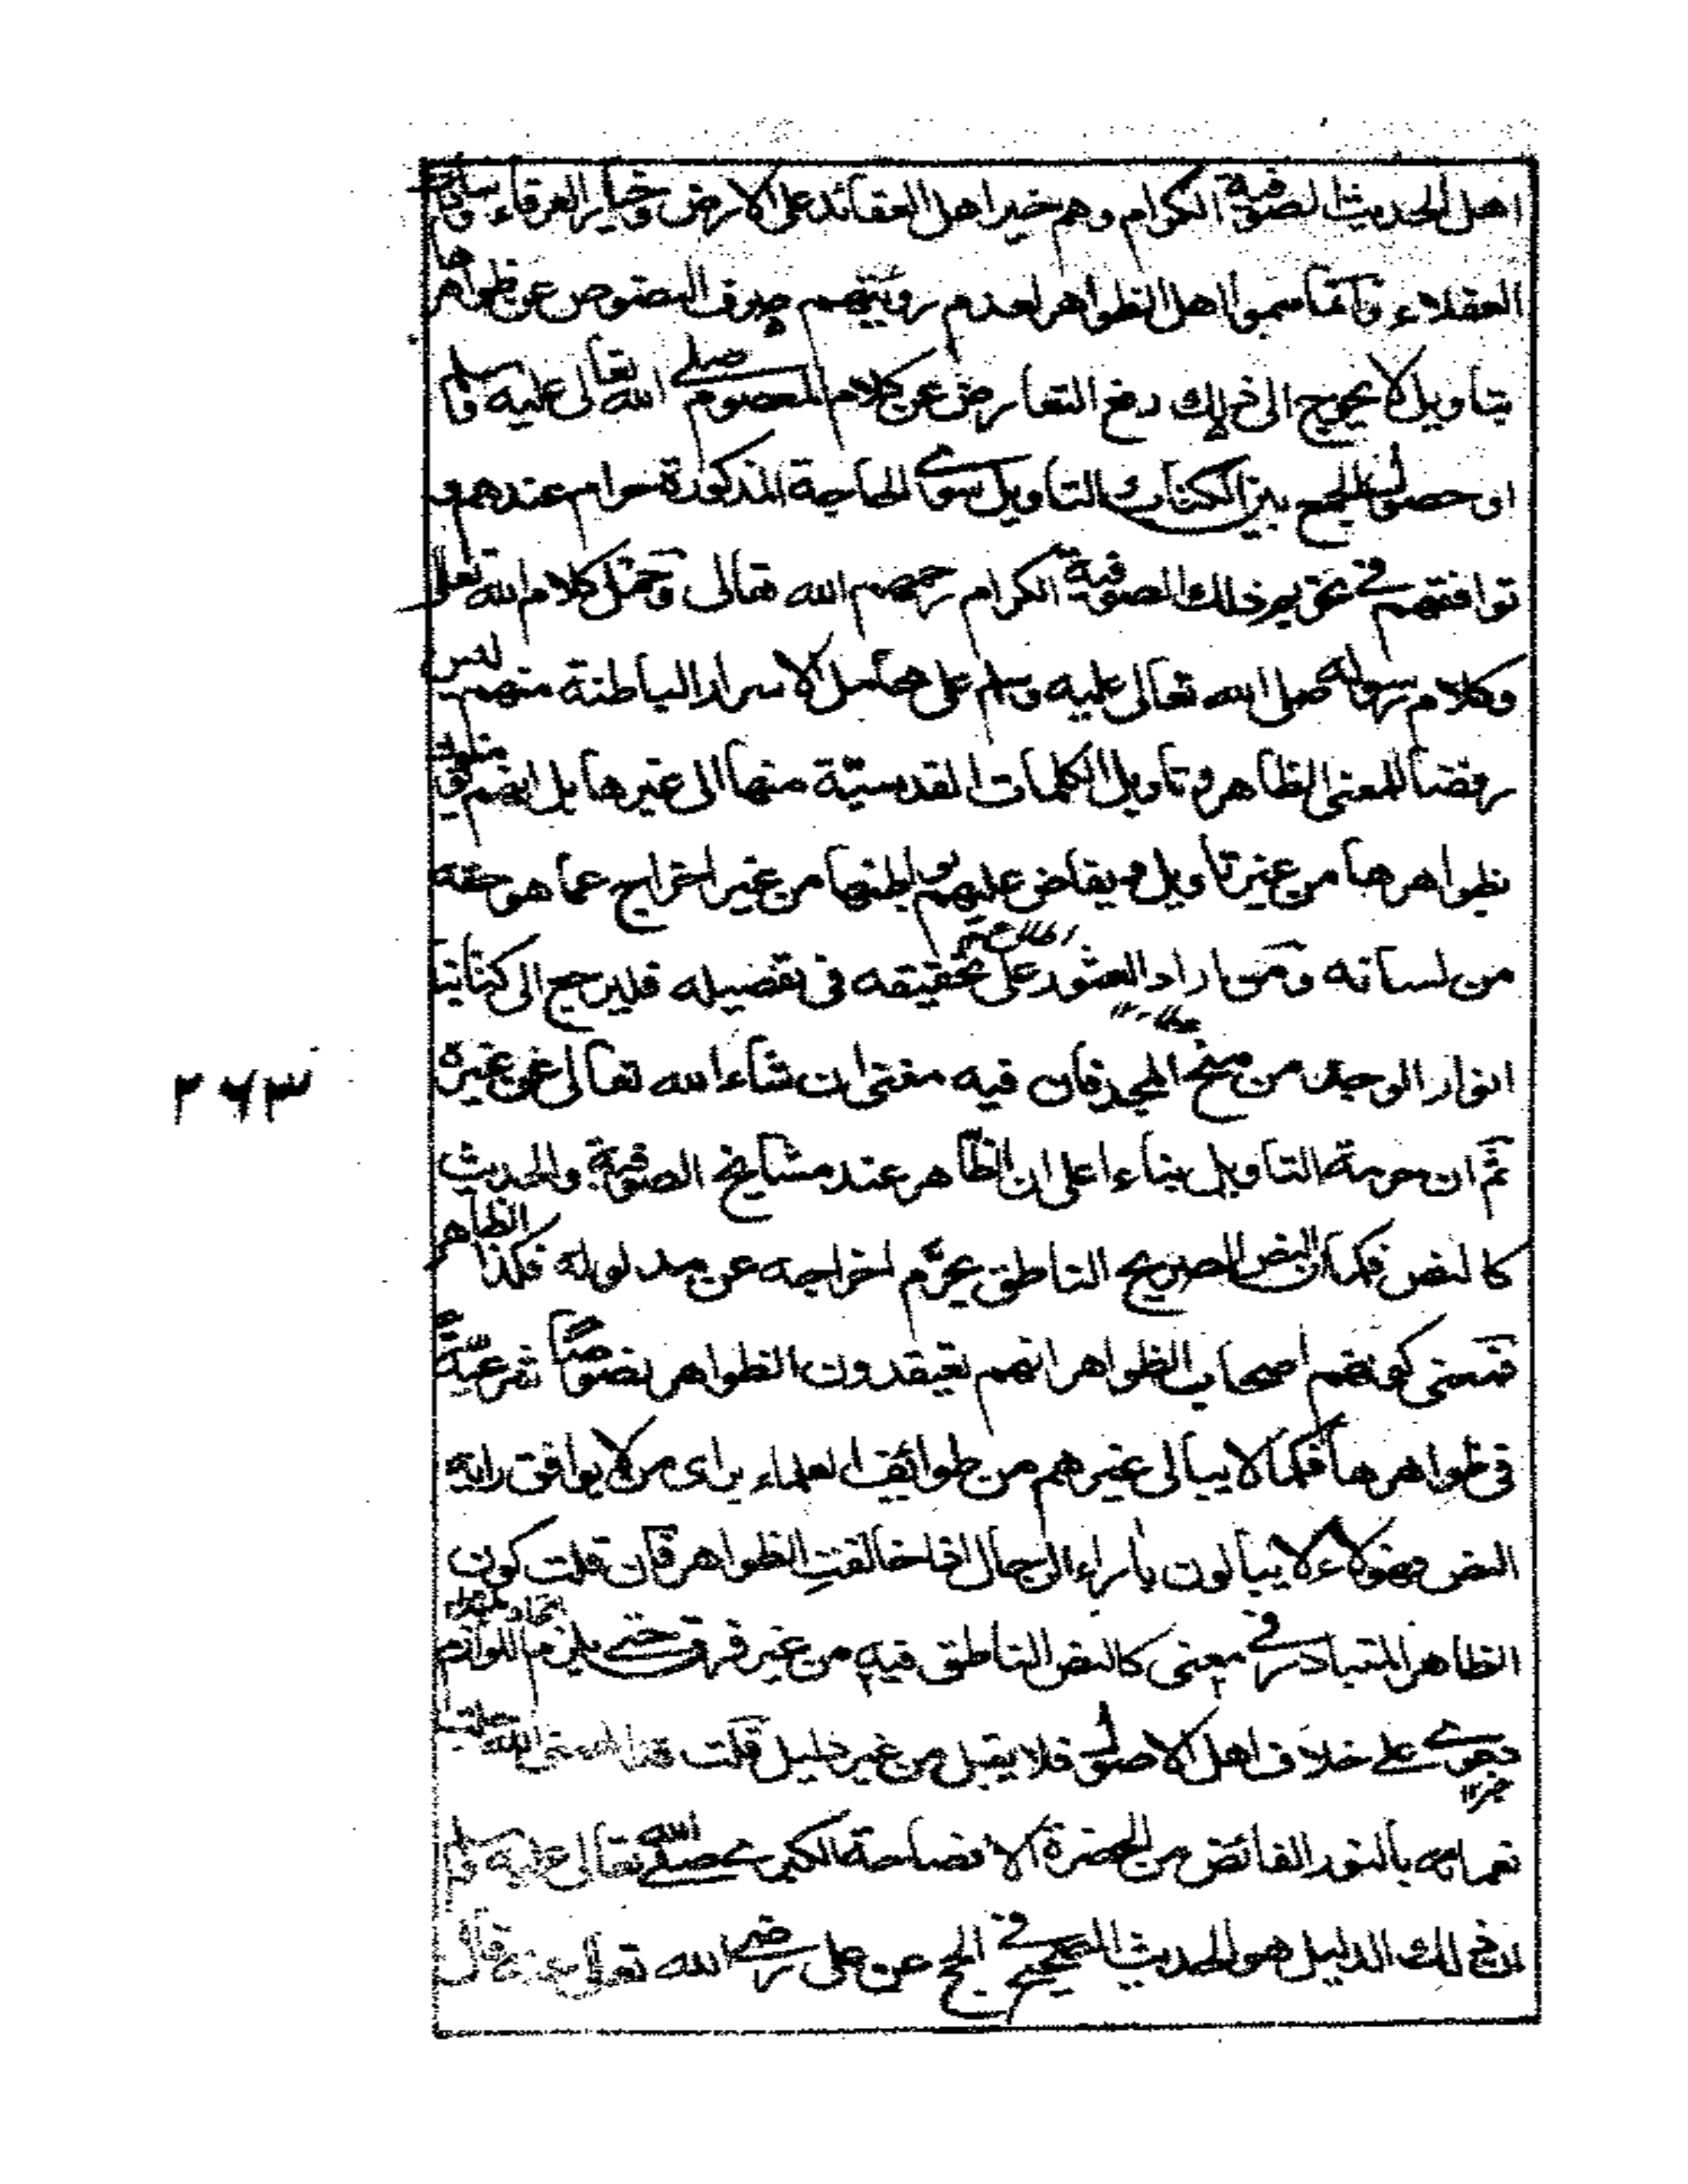 اهل الحديث الصوفية الكرام وهم خير اهل العقائد على الارض وخيار العرفاء وسادات
العقلاء وانما سموا اهل الظواهر لعدم رؤيتهم صرف النصوص عن ظواهرها
بتاويل لا يحوج الى ذلك دفع التعارض عن كلام المعصوم صلى الله تعالى عليه وسلم
او حصول الجمع بين الكتاب والتاويل سوى الحاجة المذكورة حرام عندهم و
توافقهم في تحريم ذلك الصوفية الكرام رحمهم الله تعالى وحمل كلام الله تعالى
وكلام رسوله صلى الله تعالى عليه وسلم على محامل الاسرار الباطنة منهم ليس
رفضا للمعنى الظاهر وتاويل الكلمات القدسية منها الى غيرها بل انهم
ظواهرها من غير تاويل ويفاض عليهم بواطنها من غير اخراج عما هو حقه
من لسانه ومن اراد العثور على تحقيقه في تفصيله فليرجع الى كتابنا
اطلاع
انوار الوجد من منح المجد فان فيه مغنى ان شاء الله تعالى عن غيره
ثم ان حرمة التاويل بناءا على ان الظاهر عند مشايخ الصوفية والحديث
كالنص فكما ان النص الصريح الناطق يحرم اخراجه عن مدلوله فكذا الظاهر
فمعنى كونهم اصحاب الظواهر انهم يعتقدون الظواهر نصوصا شرعية
في ظواهرها فكما لا يبالى غيرهم من طوائف العلماء براى من لا يوافق رايه
النص فهؤلاء لا يبالون بآراء الرجال اذا خالفت الظواهر فان قلت كون
الظاهر المتبادر في معنى كالنص الناطق فيه من غير فرق حتى يلزم اللوازم
دعوى على خلاف اهل الاصول فلا يقبل من غير دليل قلت
خبر
بالنور الفائض من الحضرة الافصاحة الكبرى صلى الله تعالى عليه وسلم
ان ذلك الدليل هو الحديث الصحيح في الحج عن على رضى الله تعالى عنه قال
٢٦٣